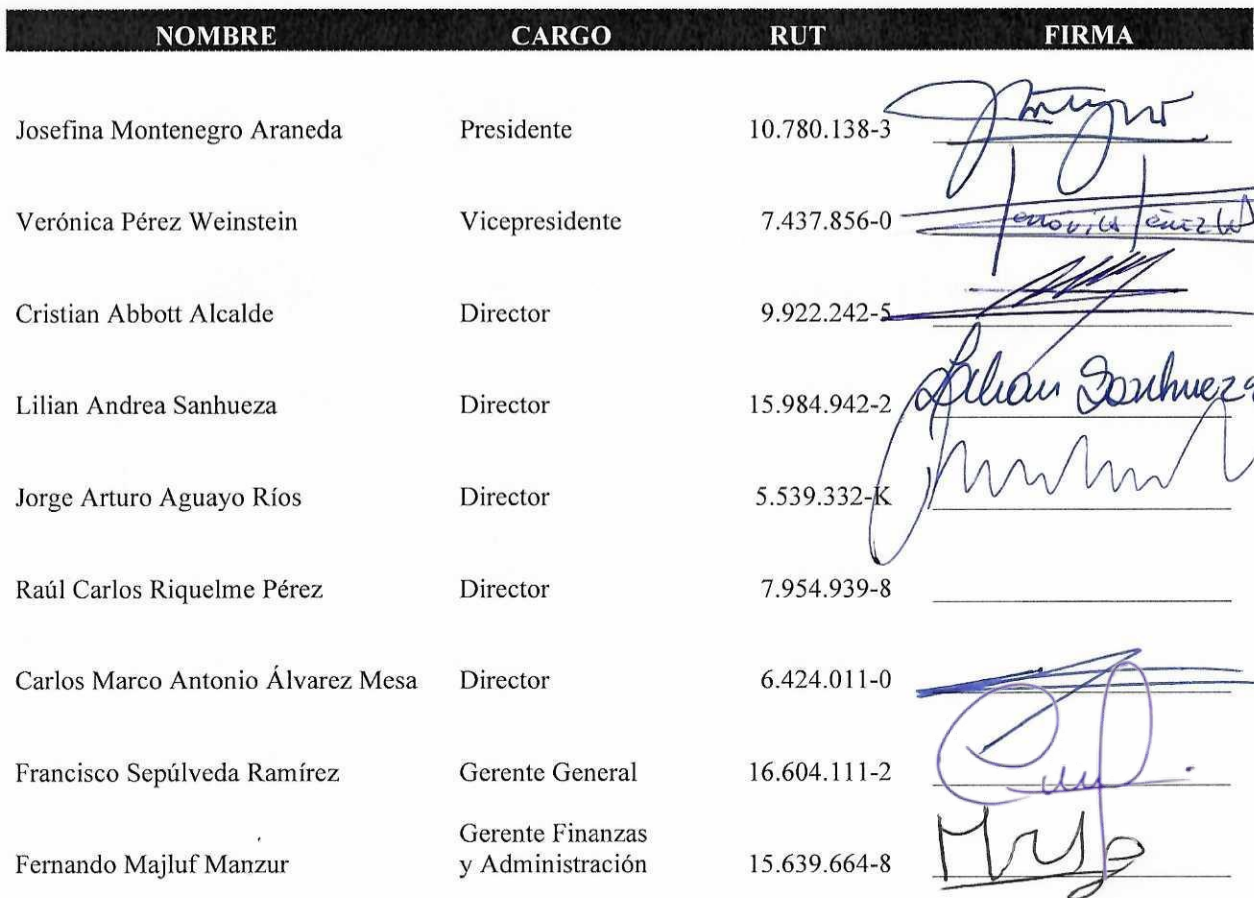 NOMBRE CARGO RUT FIRMA
Josefina Montenegro Araneda Presidente 10.780.138-3
Verónica Pérez Weinstein Vicepresidente 7.437.856-0 Verónica Pérez W
Cristian Abbott Alcalde Director 9.922.242-5
Lilian Andrea Sanhueza Director 15.984.942-2 Lilian Sanhueza
Jorge Arturo Aguayo Ríos Director 5.539.332-K
Raúl Carlos Riquelme Pérez Director 7.954.939-8
Carlos Marco Antonio Álvarez Mesa Director 6.424.011-0
Francisco Sepúlveda Ramírez Gerente General 16.604.111-2
Gerente Finanzas
Fernando Majluf Manzur y Administración 15.639.664-8